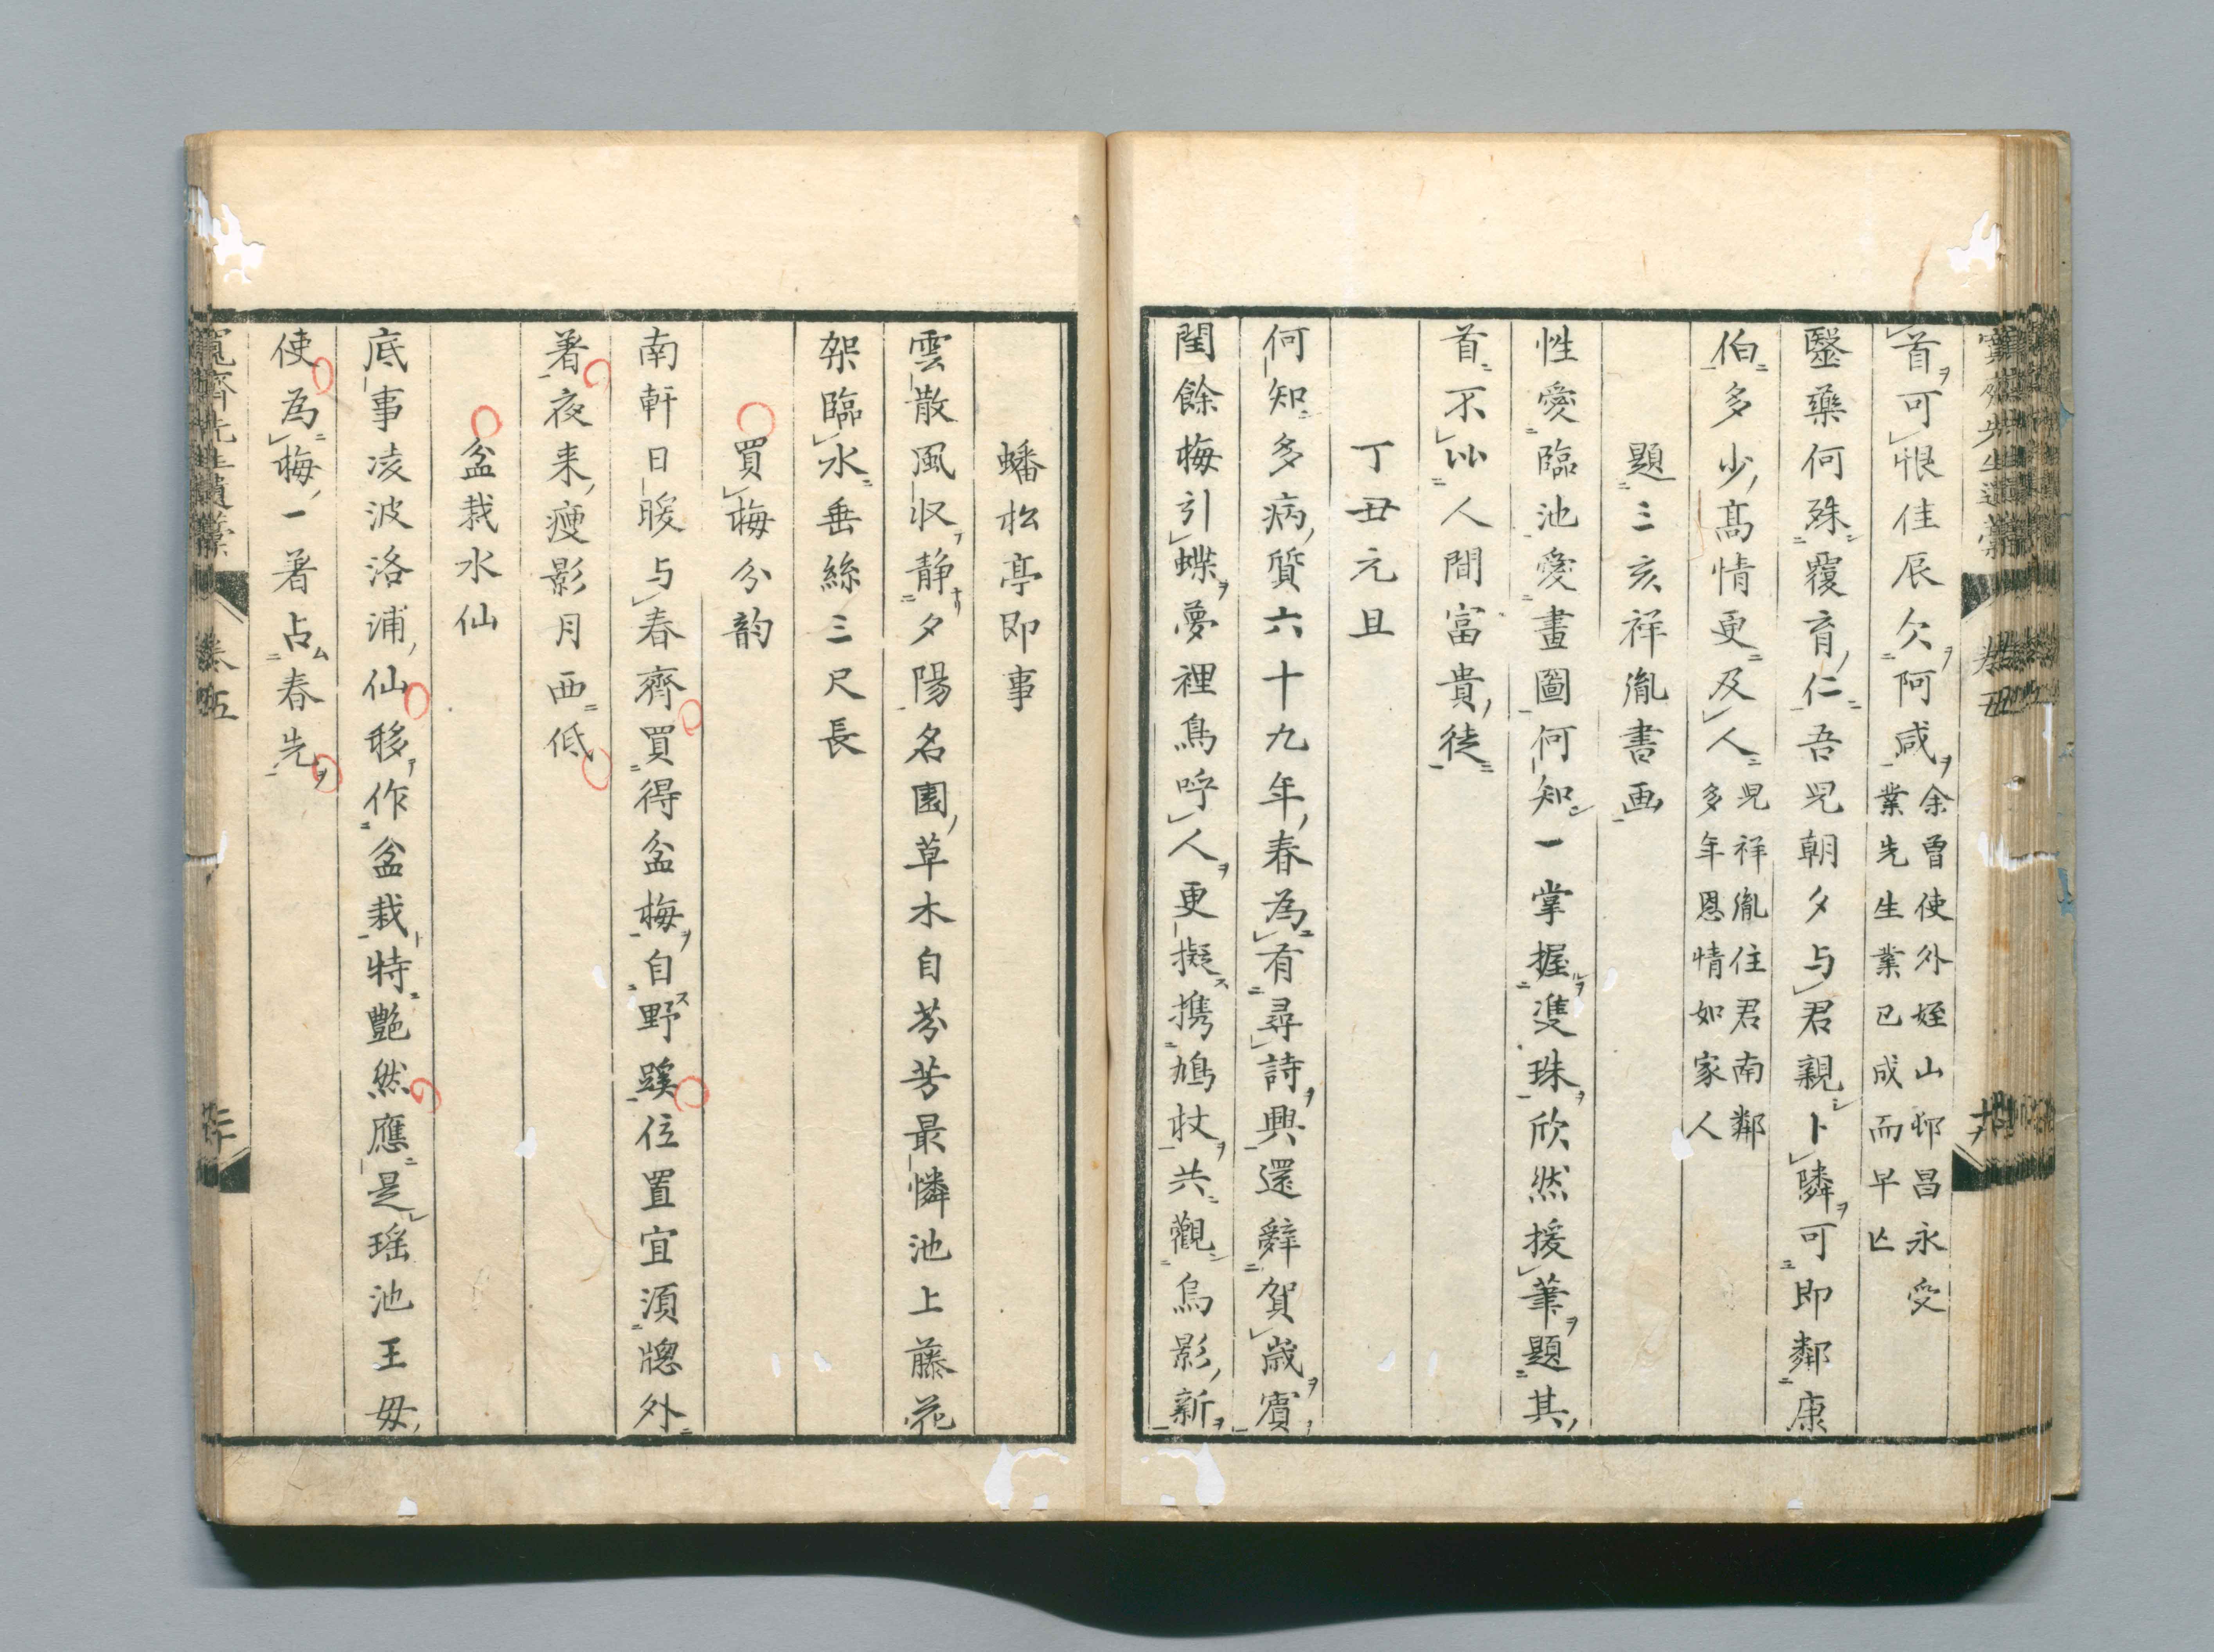 首ヲ可恨佳辰欠ヲ阿咸ヲ余曽使外姪山邨昌永受
業先生業已成而早亡
醫藥何殊覆育仁吾児朝夕与君親卜隣ヲ可即鄰康
伯多少高情更及人児祥胤住君南鄰
多年恩情如家人
題三亥祥胤書画
性愛臨池愛畫圖何知一掌握隻珠ヲ欣然援筆ヲ題其
首不以人間富貴徒
丁丑元旦
何知多病質六十九年春為有尋詩ヲ興還辭賀歳ヲ賓
閏餘梅引蝶ヲ夢裡鳥呼人ヲ更擬携鳩杖ヲ共觀烏影新ヲ
蟠松亭即事
雲散風収ヲ静ナリ夕陽名園草木自芬芳最憐池上藤花
架臨水垂絲三尺長
買梅分韵
南軒日暖与春齊買得盆梅ヲ自野蹊位置宜須牕外
著夜来瘦影月西低
盆栽水仙
底事凌波洛浦仙移ヲ作盆栽ト特艶然應是瑶池王母
使為梅一著占ム春先ヲ
巻五